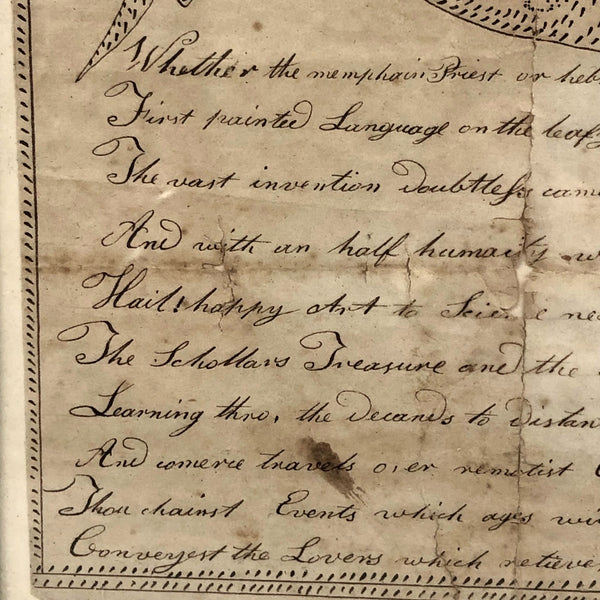 Whether the memphain Priest or heb
First painted Language on the leafy
The vast invention doubtless came
And with an half humanity w
Hail! happy Art to Science ne
The Schollars Treasure and the
Learning thro, the decands to distan
And comerce travels over remotist
Thou chainst Events which ages wi
Conveyest the Lovers which retieve